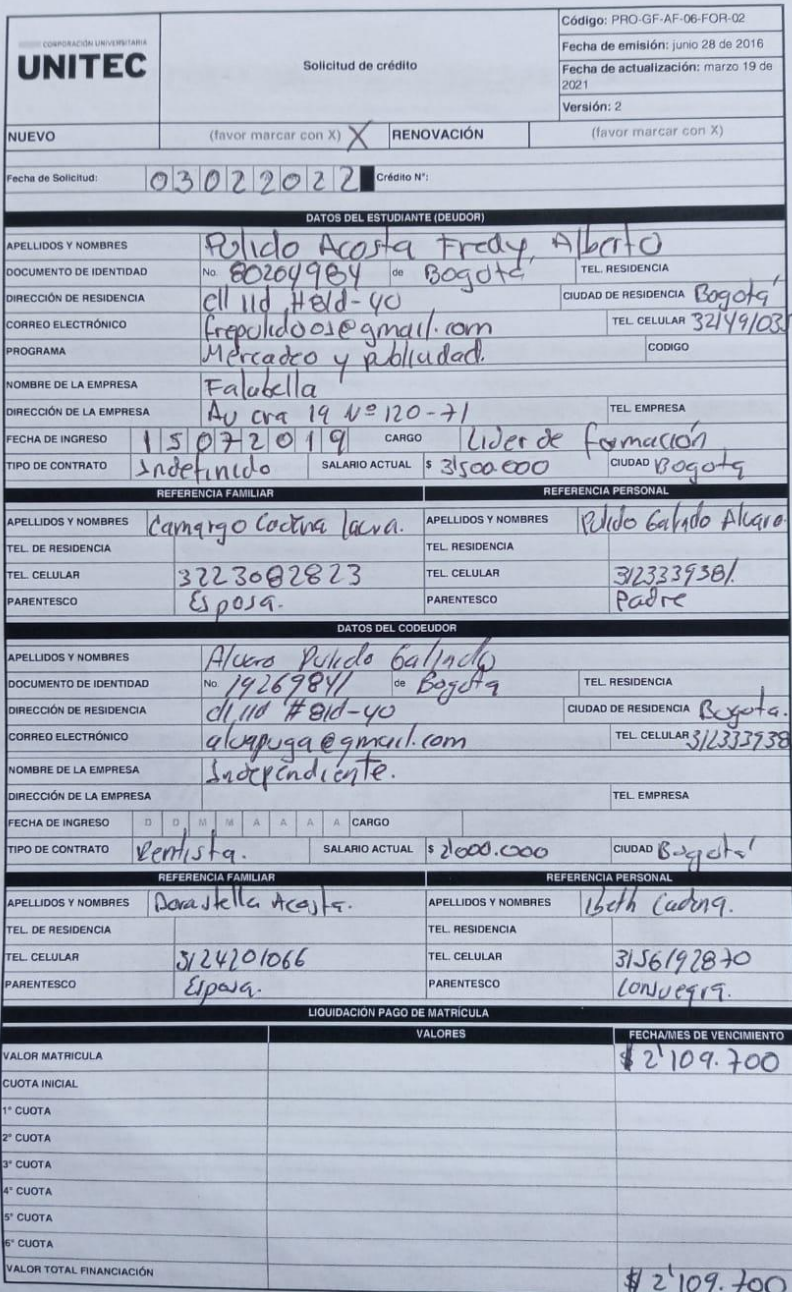 CORPORACIÓN UNIVERSITARIA
UNITEC
Solicitud de crédito
Código: PRO-GF-AF-06-FOR-02
Fecha de emisión: junio 28 de 2016
Fecha de actualización: marzo 19 de 2021
Versión: 2
NUEVO (favor marcar con X) X RENOVACIÓN (favor marcar con X)
Fecha de Solicitud: 03022022 Crédito N°:
DATOS DEL ESTUDIANTE (DEUDOR)
APELLIDOS Y NOMBRES Pulido Acosta Fredy Alberto
DOCUMENTO DE IDENTIDAD No. 80204984 de Bogotá TEL. RESIDENCIA
DIRECCIÓN DE RESIDENCIA cll 11d #81d-40 CIUDAD DE RESIDENCIA Bogotá
CORREO ELECTRÓNICO frepulido01@gmail.com TEL. CELULAR 32149103
PROGRAMA Mercadeo y publicidad. CODIGO
NOMBRE DE LA EMPRESA Falabella
DIRECCIÓN DE LA EMPRESA Av cra 19 Nº 120-71 TEL. EMPRESA
FECHA DE INGRESO 15072019 CARGO Lider de formación
TIPO DE CONTRATO Indefinido SALARIO ACTUAL $ 3'500.000 CIUDAD Bogota
REFERENCIA FAMILIAR REFERENCIA PERSONAL
APELLIDOS Y NOMBRES Camargo APELLIDOS Y NOMBRES Pulido Alvaro.
TEL. DE RESIDENCIA TEL. RESIDENCIA
TEL. CELULAR 3223082823 TEL. CELULAR 3123339381.
PARENTESCO Esposa. PARENTESCO Padre
DATOS DEL CODEUDOR
APELLIDOS Y NOMBRES Alvaro Pulido Galindo
DOCUMENTO DE IDENTIDAD No. 19269841 de Bogota TEL. RESIDENCIA
DIRECCIÓN DE RESIDENCIA cl 11d #81d-40 CIUDAD DE RESIDENCIA Bogota.
CORREO ELECTRÓNICO alvapuga@gmail.com TEL. CELULAR 312333938
NOMBRE DE LA EMPRESA Independiente.
DIRECCIÓN DE LA EMPRESA TEL. EMPRESA
FECHA DE INGRESO D D M M A A A A CARGO
TIPO DE CONTRATO Rentista. SALARIO ACTUAL $ 2'000.000 CIUDAD Bogotá
REFERENCIA FAMILIAR REFERENCIA PERSONAL
APELLIDOS Y NOMBRES Dora stella Acosta. APELLIDOS Y NOMBRES Ibeth Cadena.
TEL. DE RESIDENCIA TEL. RESIDENCIA
TEL. CELULAR 3124201066 TEL. CELULAR 3156192870
PARENTESCO Esposa. PARENTESCO Consuegra.
LIQUIDACIÓN PAGO DE MATRÍCULA
VALORES FECHA/MES DE VENCIMIENTO
VALOR MATRICULA $ 2'109.700
CUOTA INICIAL
1° CUOTA
2° CUOTA
3° CUOTA
4° CUOTA
5° CUOTA
6° CUOTA
VALOR TOTAL FINANCIACIÓN $ 2'109.700